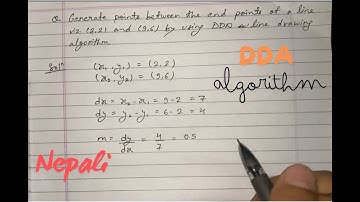 Q. Generate points between the end points of a line
viz (2,2) and (9,6) by using DDA line drawing
algorithm
DDA
algorithm
Solⁿ
(x₁, y₁) = (2,2)
(x₂, y₂) = (9,6)
dx = x₂ - x₁ = 9-2 = 7
dy = y₂ - y₁ = 6-2 = 4
m = dy/dx = 4/7 = 0.5
Nepali